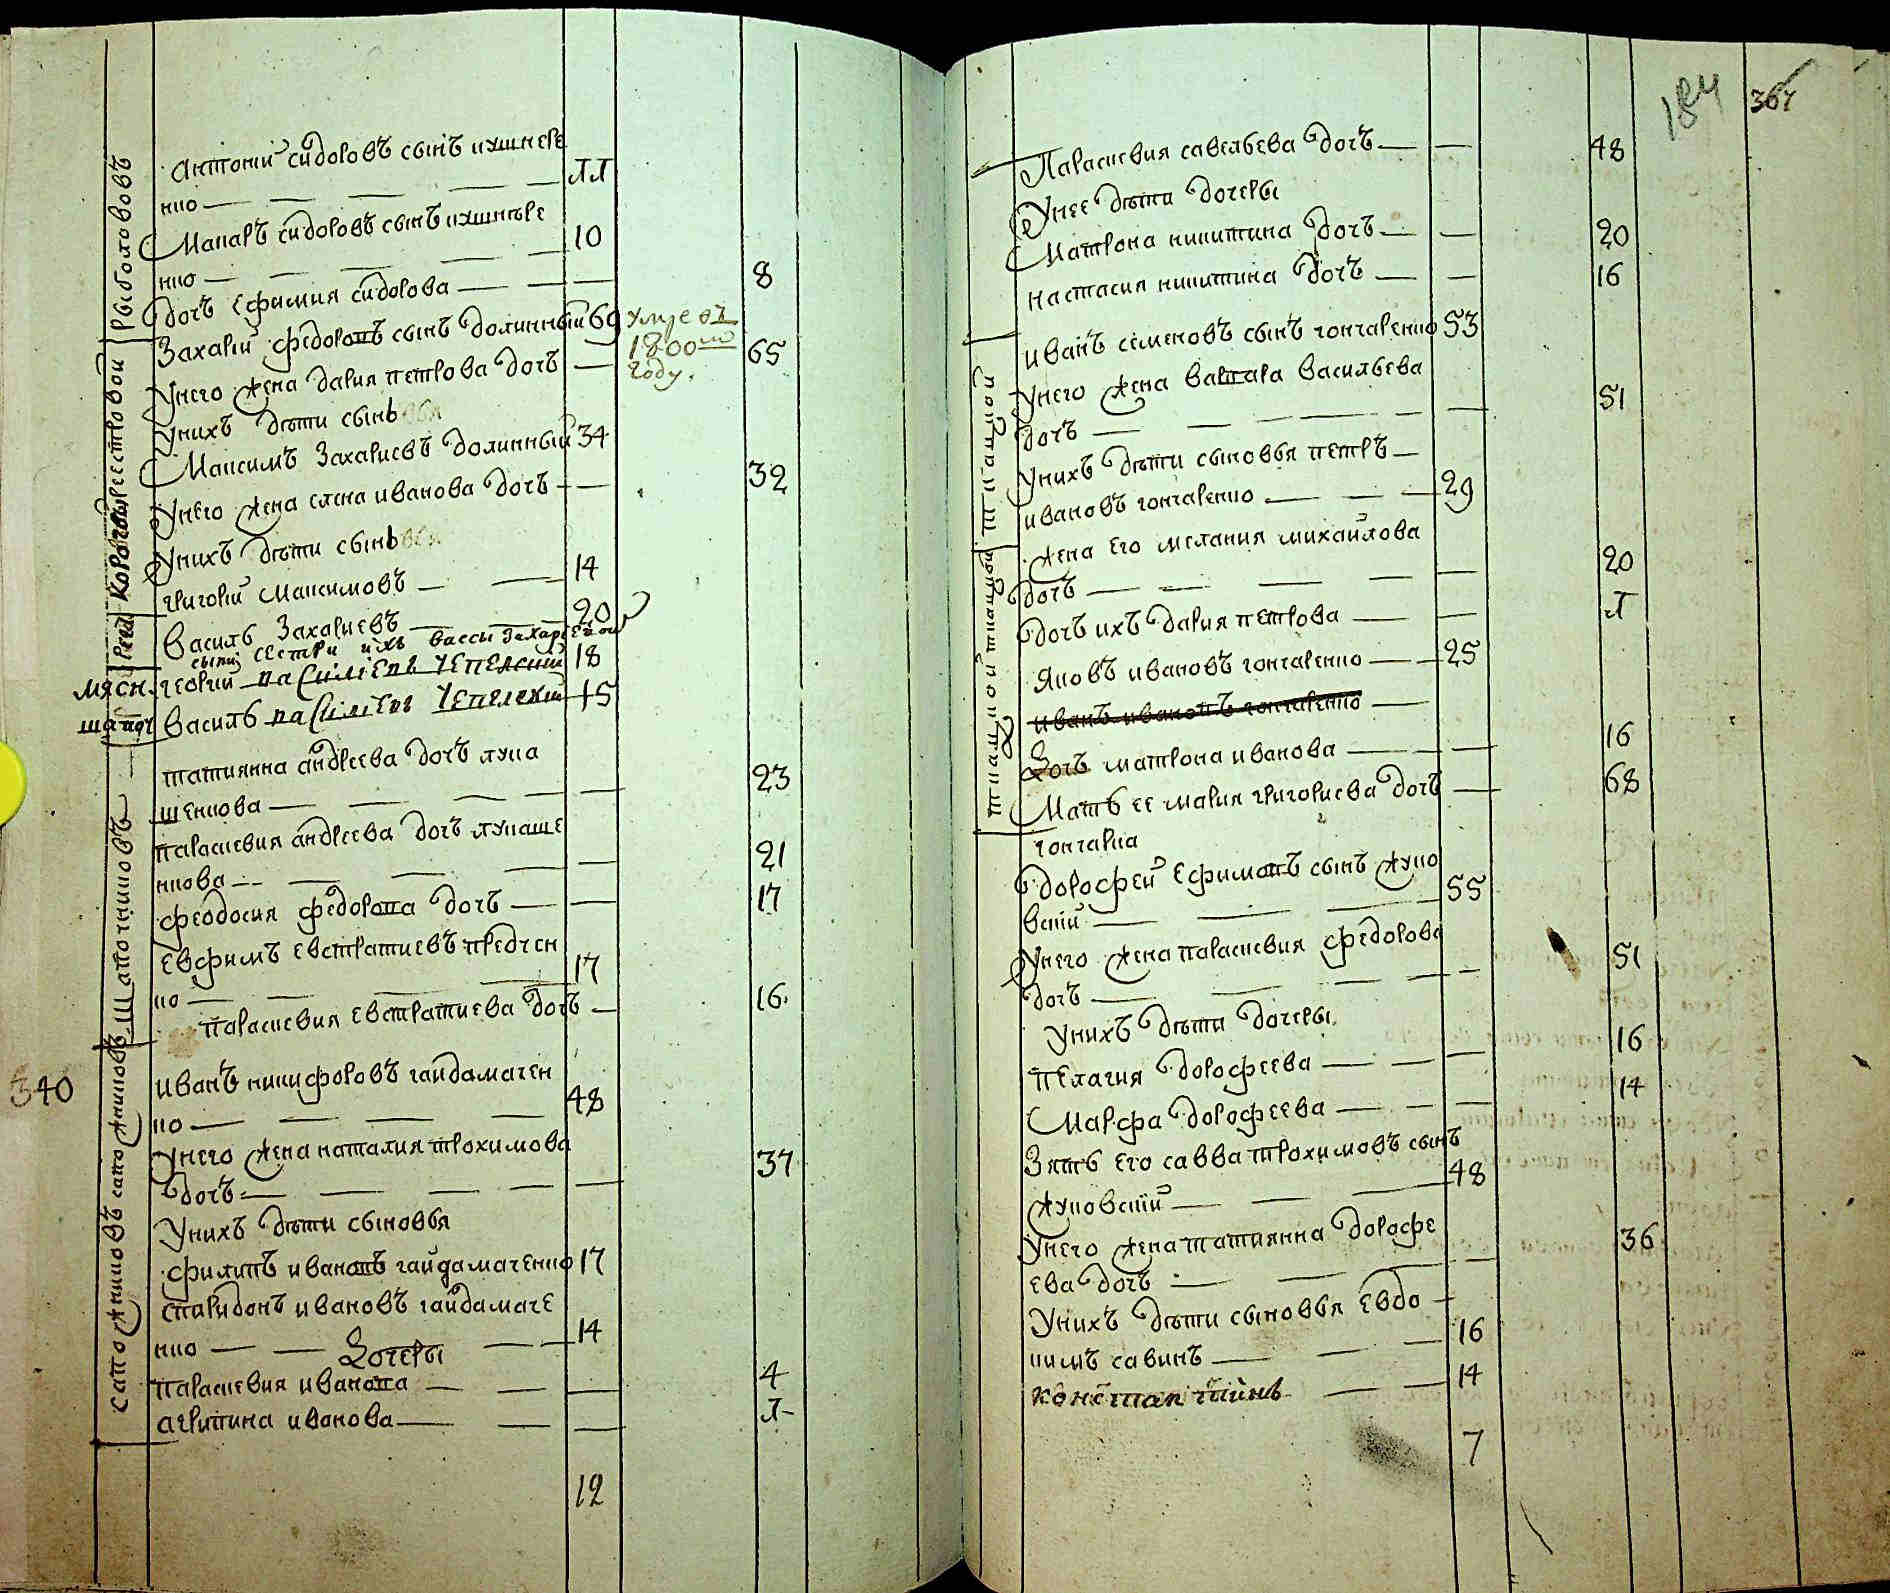 Рыболововъ
Антоній Сидоровъ сынъ Кушнере
нко — — — — 11
Макаръ Сидоровъ сынъ Кушнѣре
нко — — — — 10
дочь Ефимия Сидорова — — — 8
Захарій Федоровъ сынъ Долинный 69 умре въ
1800мъ
году.
Унего жена Дария Петрова дочь — 65
Унихъ дѣти сынь
Максимъ Захариевъ Долинный 34
Унего жена Елена Иванова дочь — 32
Унихъ дѣти сынь
Григорій Максимовъ — — 14
Василь Захариевъ — — 20
сыны сестри ихъ Вассы Захариевои
мясн. Георгий Василіевъ Чепелский 18
шапоч Василь Василіевъ Чепелский 15
Шапочниковъ
Татиянна Андреева дочь Лука
шенкова — — — — 23
Параскевия Андреева дочь Лукаше
нкова — — — — 21
Феодосия Федорова дочь — — 17
Евфимъ Евстратиевъ Предчен
ко — — — — 17
Параскевия Евстратиева дочь — 16.
340
Сапожниковъ Сапожниковъ
Иванъ Никифоровъ Гайдамачен
ко — — — — 48
Унего жена Наталия Трохимова
дочь — — — — 37
Унихъ дѣти сыновья
Филипъ Ивановъ Гайдамаченко 17
Спиридонъ Ивановъ Гайдамаче
нко — — дочеры — — 14
Параскевия Иванова — — — 4
Агрипина Иванова — — — 1
12
184 367
Параскевия Савельева дочь — — 48
Унее дѣти дочеры
Матрона Никитина дочь — — 20
Настасия Никитина дочь — — 16
Иванъ Семеновъ сынъ Гончаренко 53
Унего жена Варвара Васильева
дочь — — — — 51
Унихъ дѣти сыновья Петръ —
Ивановъ Гончаренко — — — 29
жена его Мелания Михайлова
дочь — — — — 20
дочь ихъ Дария Петрова — — 1
Яковъ Ивановъ Гончаренко — — 25
Иванъ Ивановъ Гончаренко —
Дочь Матрона Иванова — — 16
Мать ее Мария Григориева дочь — 68
Гончарка
Дорофей Ефимовъ сынъ Жуко
вскій — — — 55
Унего жена Параскевия Федорова
дочь — — — — 51
Унихъ дѣти дочеры
Пелагия Дорофеева — — — 16
Марфа Дорофеева — — — 14
Зять его Савва Трохимовъ сынъ
Жуковскій — — — 48
Унего жена Татиянна Дорофе
ева дочь — — — 36
Унихъ дѣти сыновья Евдо —
кимъ Савинъ — — — 16
Константинъ — — 14
7